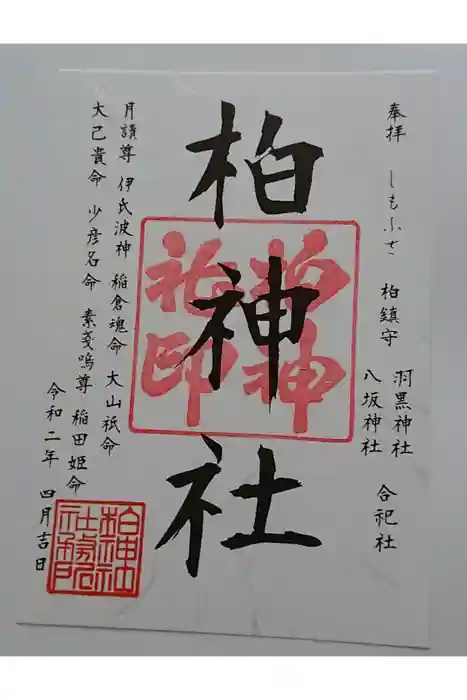 奉拝 しもふさ 柏鎮守 羽黒神社
八坂神社 合祀社
柏神社
柏神
社印
月讀尊 伊氐波神 稲倉魂命 大山祇命
大己貴命 少彦名命 素戔嗚尊 稲田姫命
令和二年 四月吉日
柏神社
社務所
之印